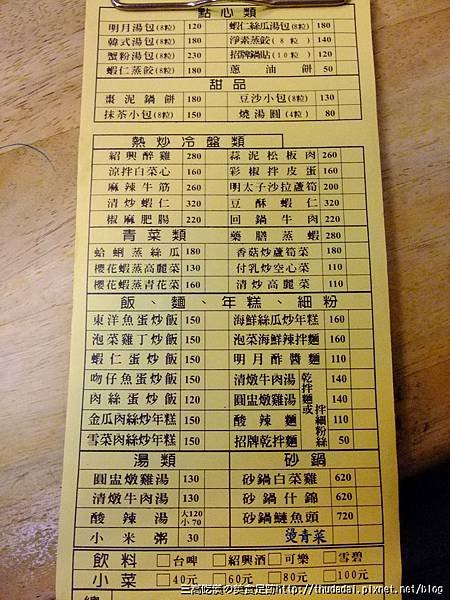 點心類
明月湯包(8粒) 120 蝦仁絲瓜湯包(8粒) 180
韓式湯包(8粒) 180 淨素蒸餃(8粒) 140
蟹粉湯包(8粒) 180 招牌鍋貼(10粒) 120
蝦仁蒸餃(8粒) 180 蔥油餅 50
甜品
棗泥鍋餅 180 豆沙小包(8粒) 130
抹茶小包(8粒) 160 燒湯圓(4粒) 80
熱炒冷盤類
紹興醉雞 280 蒜泥松板肉 260
涼拌白菜心 160 彩椒拌皮蛋 160
麻辣牛筋 260 明太子沙拉蘆筍 200
清炒蝦仁 320 豆酥蝦仁 320
椒麻肥腸 220 回鍋牛肉 220
青菜類 藥膳蒸蝦 280
蛤蜊蒸絲瓜 180 香菇炒蘆筍菜 180
櫻花蝦蒸高麗菜 130 付乳炒空心菜 110
櫻花蝦蒸青花菜 160 清炒高麗菜 110
飯、麵、年糕、細粉
東洋魚蛋炒飯 150 海鮮絲瓜炒年糕 160
泡菜雞丁炒飯 150 泡菜海鮮辣拌麵 160
蝦仁蛋炒飯 150 明月酢醬麵 110
吻仔魚蛋炒飯 150 清燉牛肉湯 乾拌麵或拌細粉絲 140
肉絲蛋炒飯 120 圓盅燉雞湯 140
金瓜肉絲炒年糕 150 酸辣麵 110
雪菜肉絲炒年糕 150 招牌乾拌麵 50
湯類 砂鍋
圓盅燉雞湯 130 砂鍋白菜雞 620
清燉牛肉湯 130 砂鍋什錦 620
酸辣湯 大120 小70 砂鍋鰱魚頭 720
小米粥 30 燙青菜
飲料 □台啤 □紹興酒 □可樂 □雪碧
小菜 □40元 □60元 □80元 □100元
三高吃貨の美食足跡http://thudadai.pixnet.net/blog